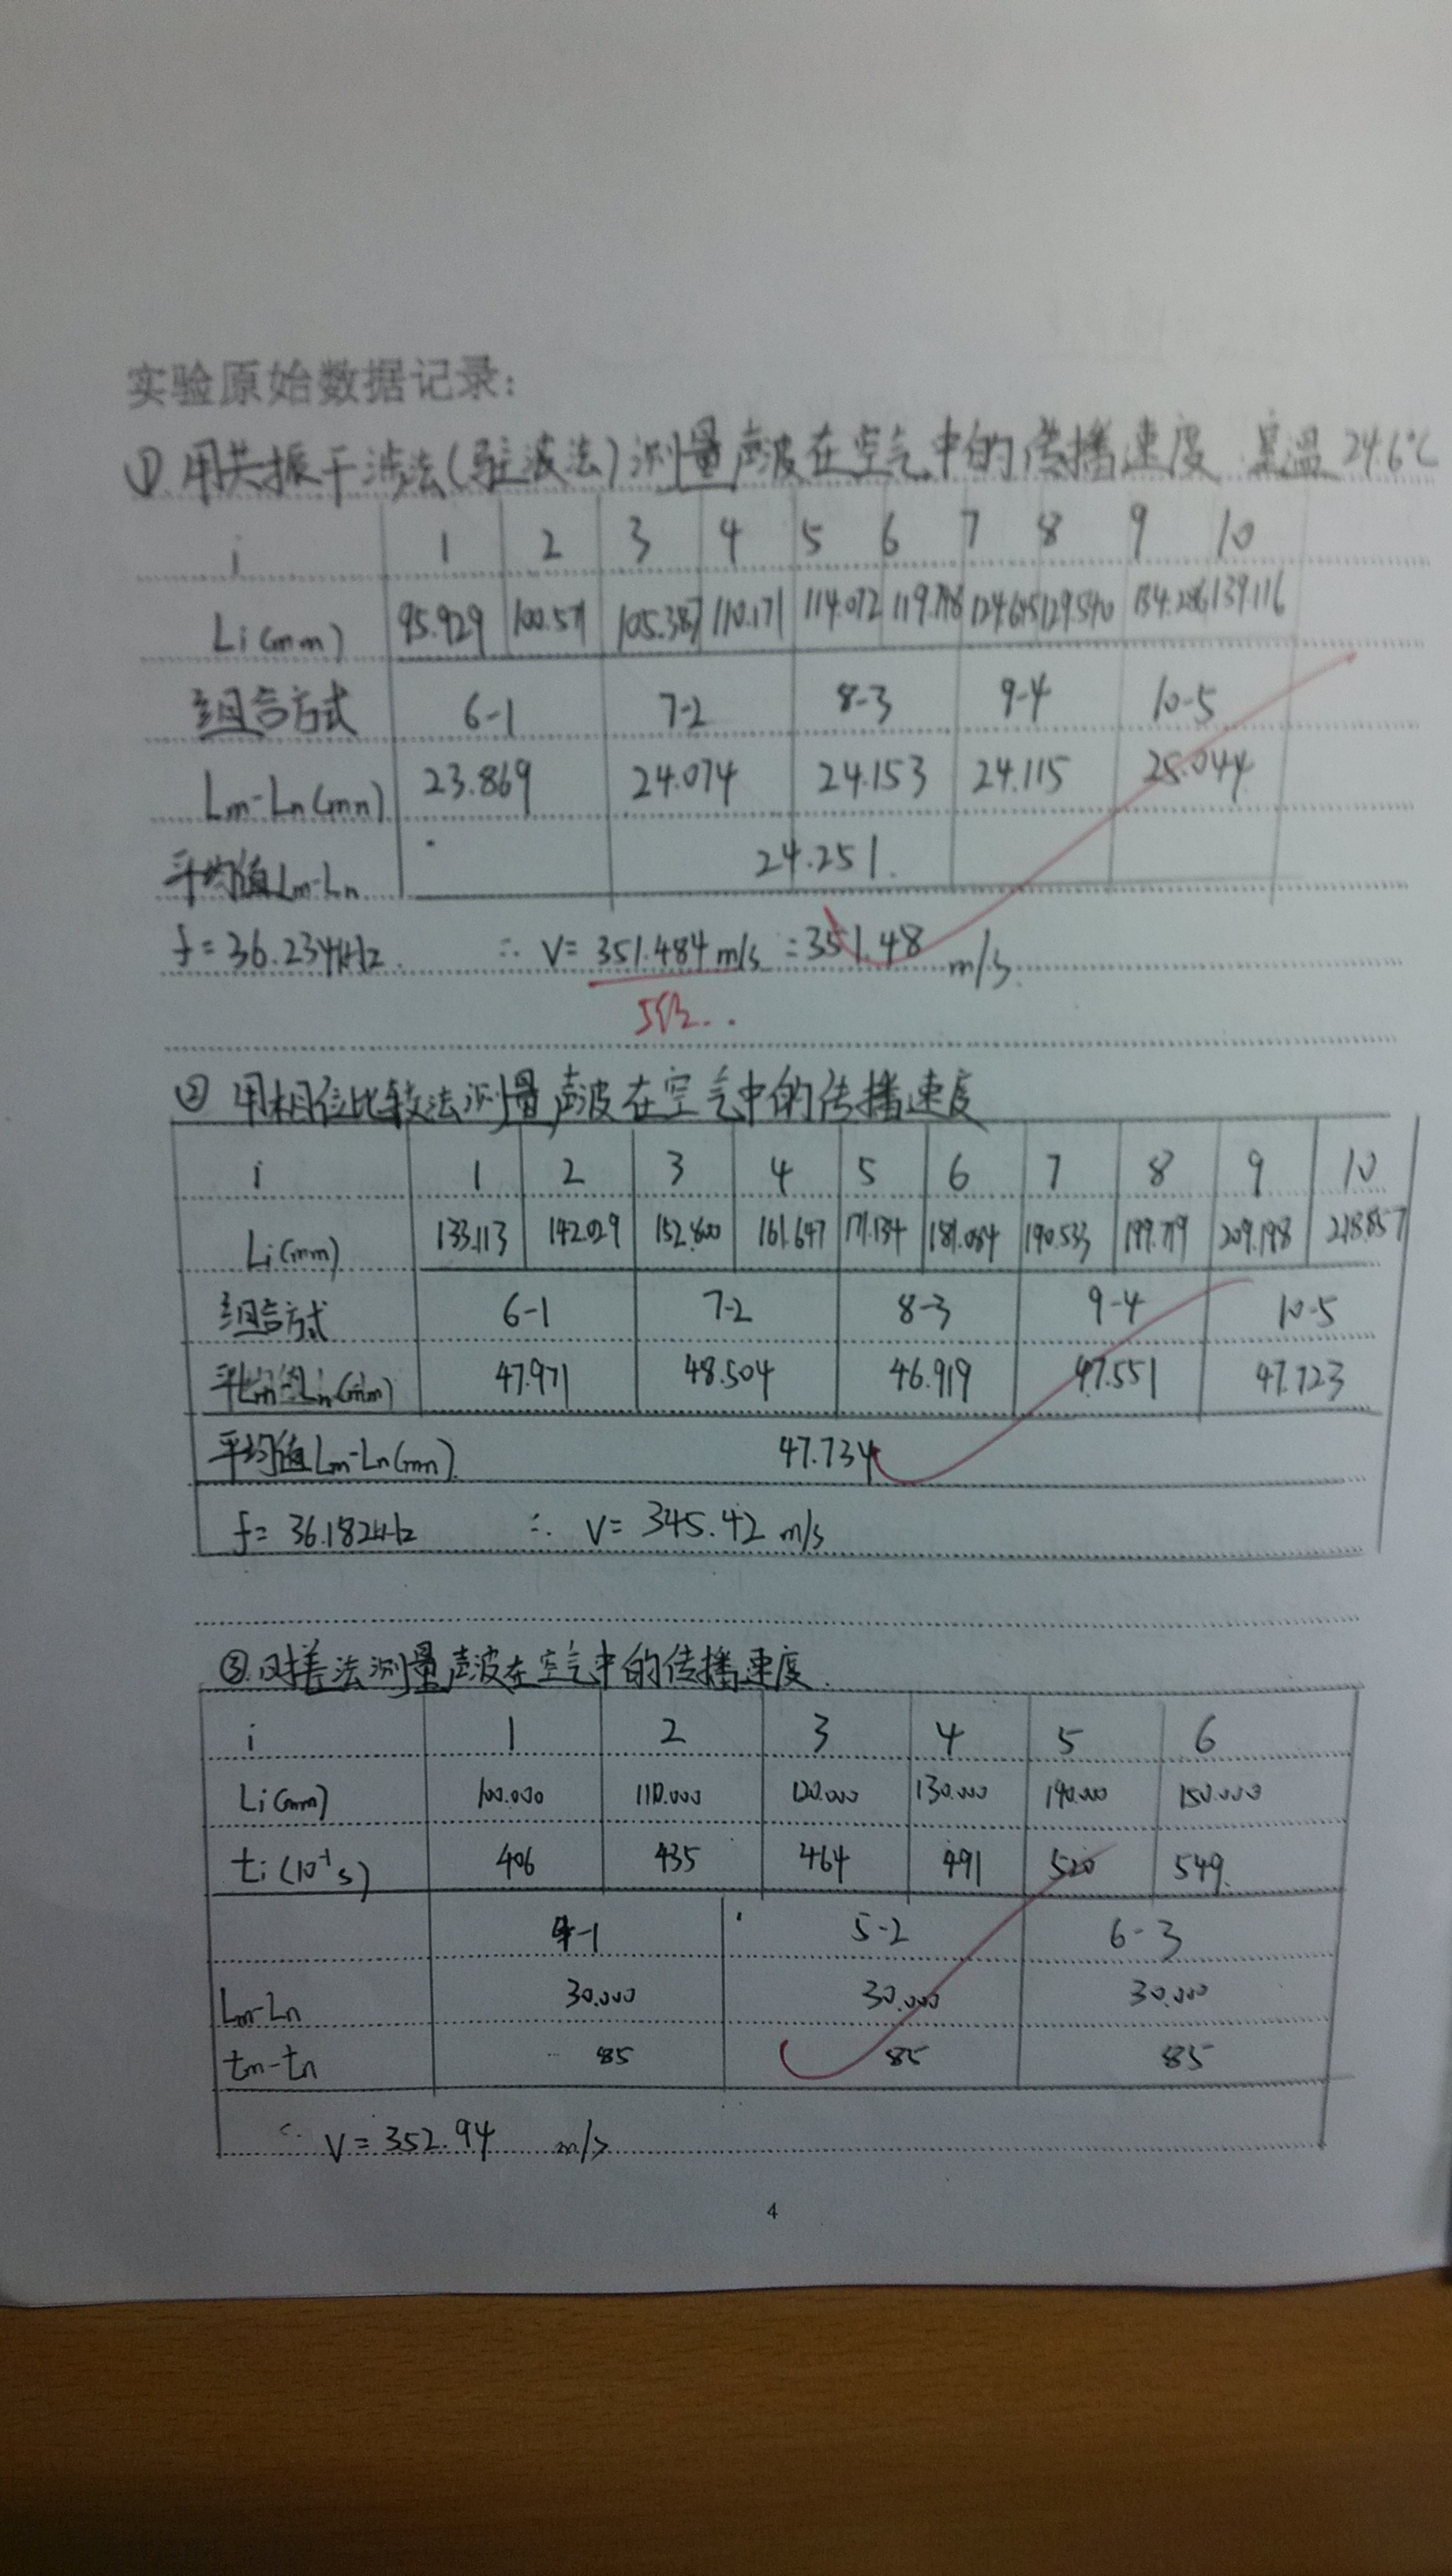 实验原始数据记录:
① 用共振干涉法(驻波法)测量声波在空气中的传播速度 室温 24.6℃
i 1 2 3 4 5 6 7 8 9 10
Li(mm) 95.929 100.571 105.387 110.171 114.072 119.798 124.645 129.540 134.286 139.116
组合方式 6-1 7-2 8-3 9-4 10-5
Lm-Ln(mm) 23.869 24.074 24.153 24.115 25.044
平均值Lm-Ln 24.251
f=36.234kHz. ∴ V=351.484m/s =351.48 m/s.
5位..
② 用相位比较法测量声波在空气中的传播速度
i 1 2 3 4 5 6 7 8 9 10
Li(mm) 133.113 142.029 152.800 161.647 171.134 181.084 190.533 199.719 209.198 218.857
组合方式 6-1 7-2 8-3 9-4 10-5
Lm-Ln(mm) 47.971 48.504 46.919 47.551 47.723
平均值Lm-Ln(mm) 47.734
f=36.182kHz ∴ V=345.42 m/s
③.时差法测量声波在空气中的传播速度.
i 1 2 3 4 5 6
Li(mm) 100.000 110.000 120.000 130.000 140.000 150.000
ti(10⁻¹s) 406 435 464 491 520 549.
4-1 5-2 6-3
Lm-Ln 30.000 30.000 30.000
tm-tn 85 85 85
∴ V=352.94 m/s
4